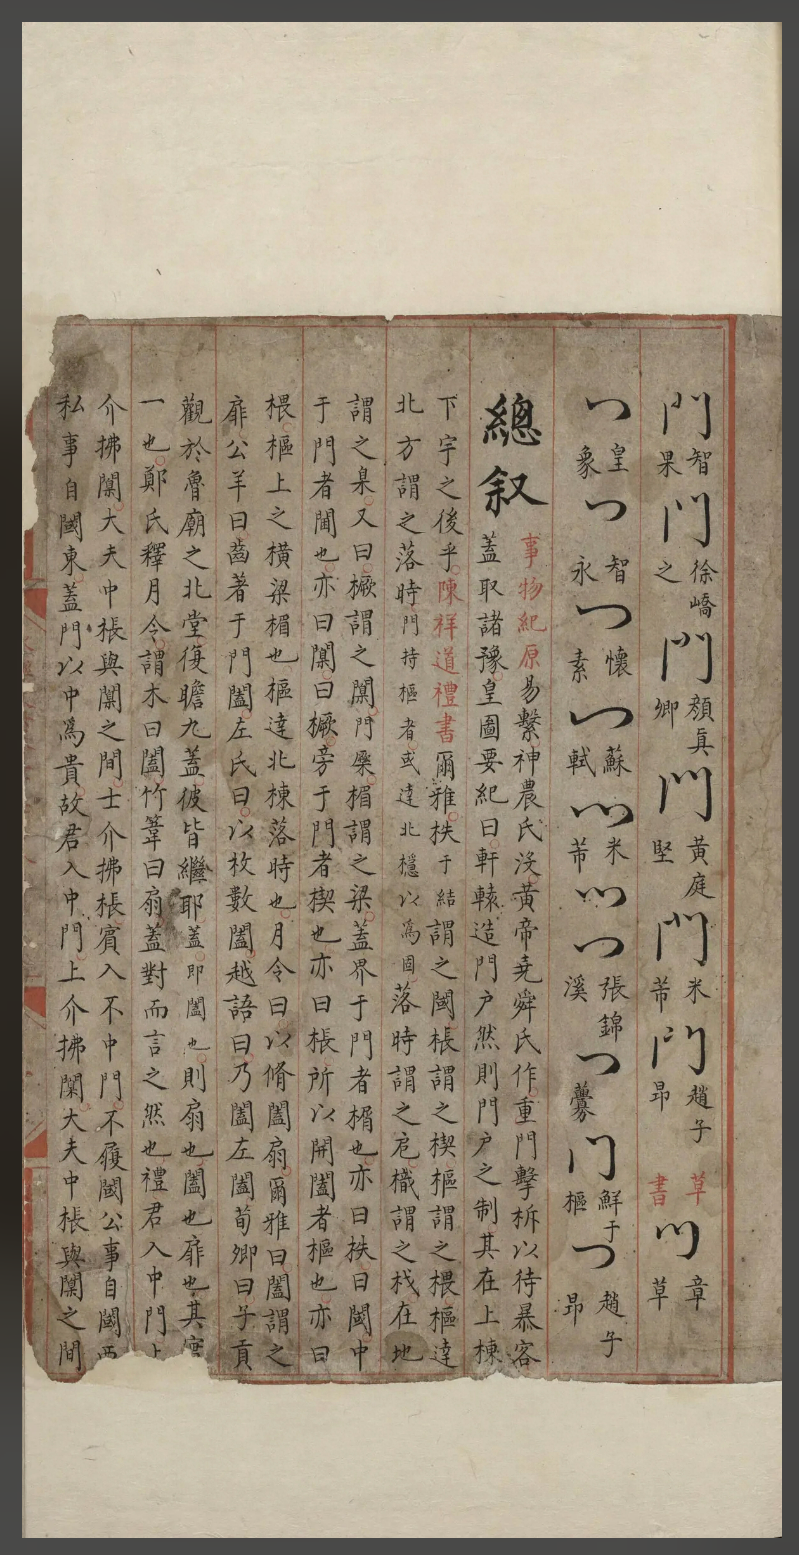 門智果門徐嶠之門顏真卿門黃庭堅門米芾門趙子昂草書門章草
門皇象門智永門懷素門蘇軾門米芾門門張錦溪門巎巎門鮮于樞門趙子昂
總叙
事物紀原易繫神農氏沒黃帝堯舜氏作重門擊柝以待暴客
蓋取諸豫皇圖要紀曰軒轅造門户然則門户之制其在上棟
下宇之後乎陳祥道禮書爾雅柣于結謂之閾棖謂之楔樞謂之椳樞達
北方謂之落時門持樞者或達北檼以爲固落時謂之戹樴謂之杙在地
謂之臬又曰橛謂之闑門橜楣謂之梁蓋界于門者楣也亦曰柣曰閾中
于門者閫也亦曰闑曰橛旁于門者楔也亦曰棖所以開闔者樞也亦曰
椳樞上之橫梁楣也樞達北棟落時也月令曰以脩闔扇爾雅曰闔謂之
扉公羊曰齒著于門闔左氏曰以枚數闔越語曰乃闔左闔荀卿曰子貢
觀於魯廟之北堂復瞻九蓋彼皆繼耶蓋即闔也則扇也闔也扉也其實
一也鄭氏釋月令謂木曰闔竹葦曰扇蓋對而言之然也禮君入中門上
介拂闑大夫中棖與闑之間士介拂棖賓入不中門不履閾公事自闑西
私事自闑東蓋門以中爲貴故君入中門上介拂闑大夫中棖與闑之間